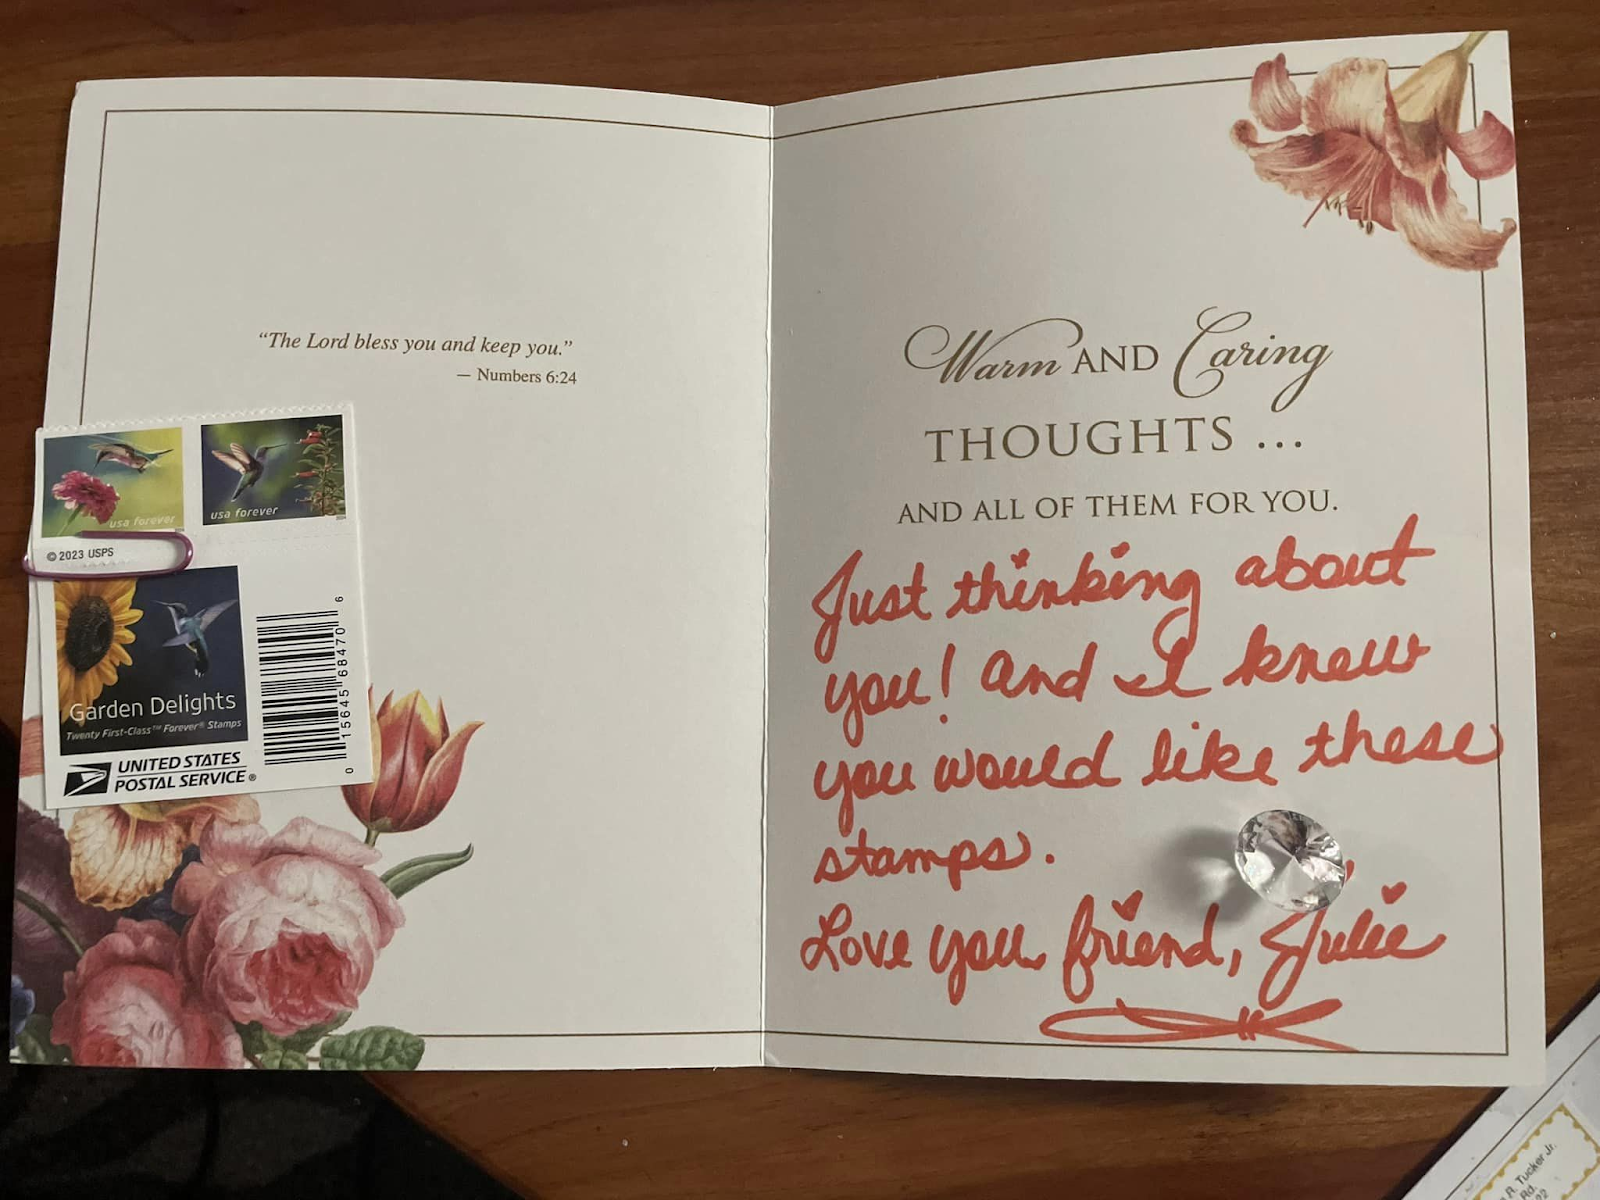 “The Lord bless you and keep you.”
— Numbers 6:24
usa forever
usa forever
2024
© 2023 USPS
Garden Delights
Twenty First-Class™ Forever® Stamps
UNITED STATES
POSTAL SERVICE®
0 15645 68470 6
Warm AND Caring
THOUGHTS ...
AND ALL OF THEM FOR YOU.
Just thinking about
you! And I knew
you would like these
stamps.
Love you friend, Julie
R. Tucker Jr.
Rd.